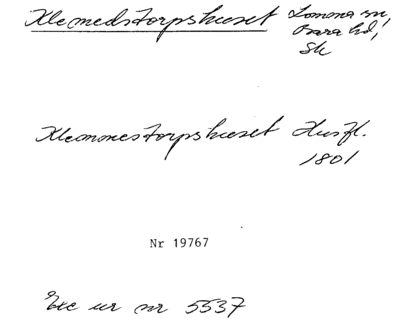 Klemedstorpshuset Lomma sn,
Bara hd,
Sk
Klemmestorpshuset Husfl.
1801
Nr 19767
Exc ur nr 5537